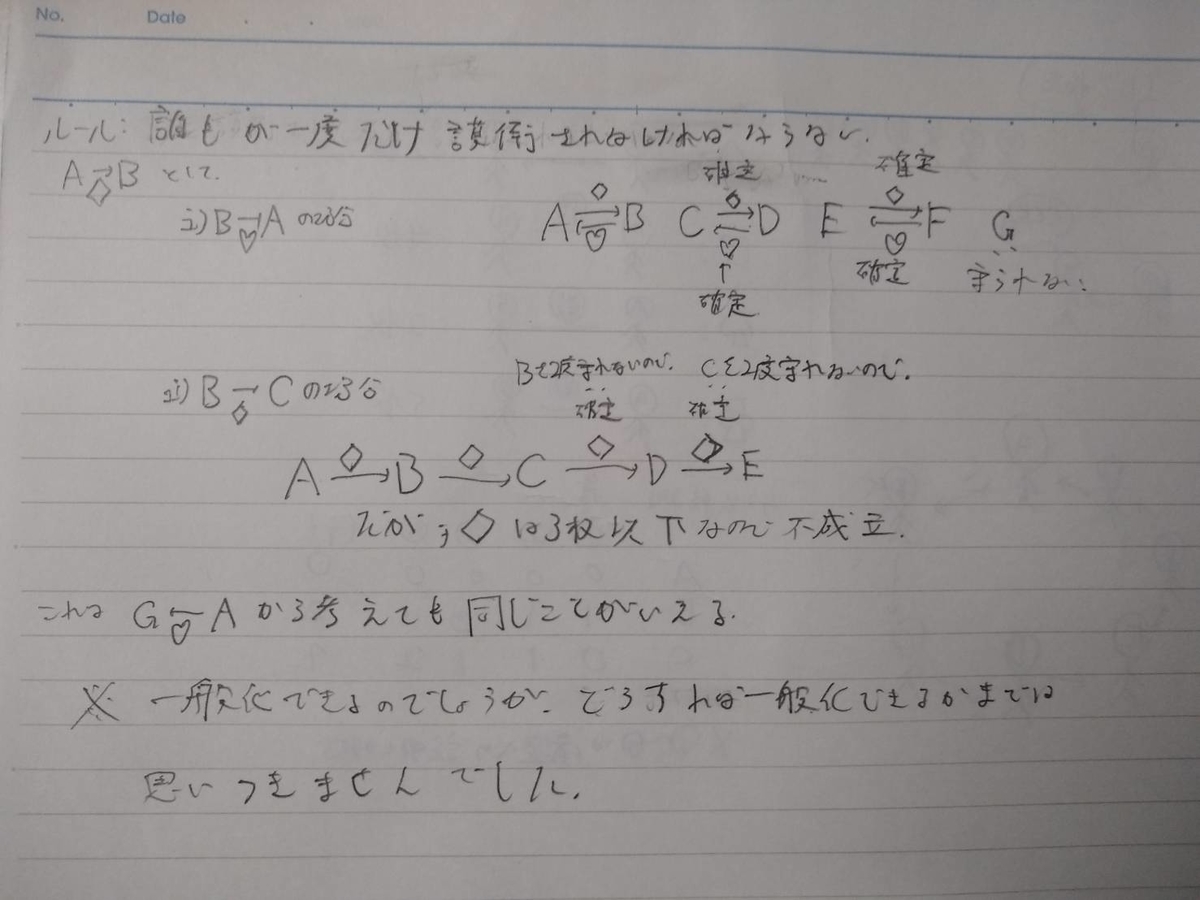 No. Date
ルール: 誰もが一度だけ護衛されなければならない.
A→B として.
◇
i) B→A の場合
♡
確定 確定
◇ ◇ ◇
A⇄B C⇄D E⇄F G
♡ ♡ ♡ ∵
↑ 確定 守られない
確定
Bを2度守れないので. Cを2度守れないので.
ii) B→C の場合
◇
確定 確定
◇ ◇ ◇ ◇
A→B→C→D→E
だが, ◇は3枚以下なので不成立.
これは G←A から考えても同じことがいえる.
♡
※ 一般化できるのでしょうが、どうすれば一般化できるかまでは
思いつきませんでした.